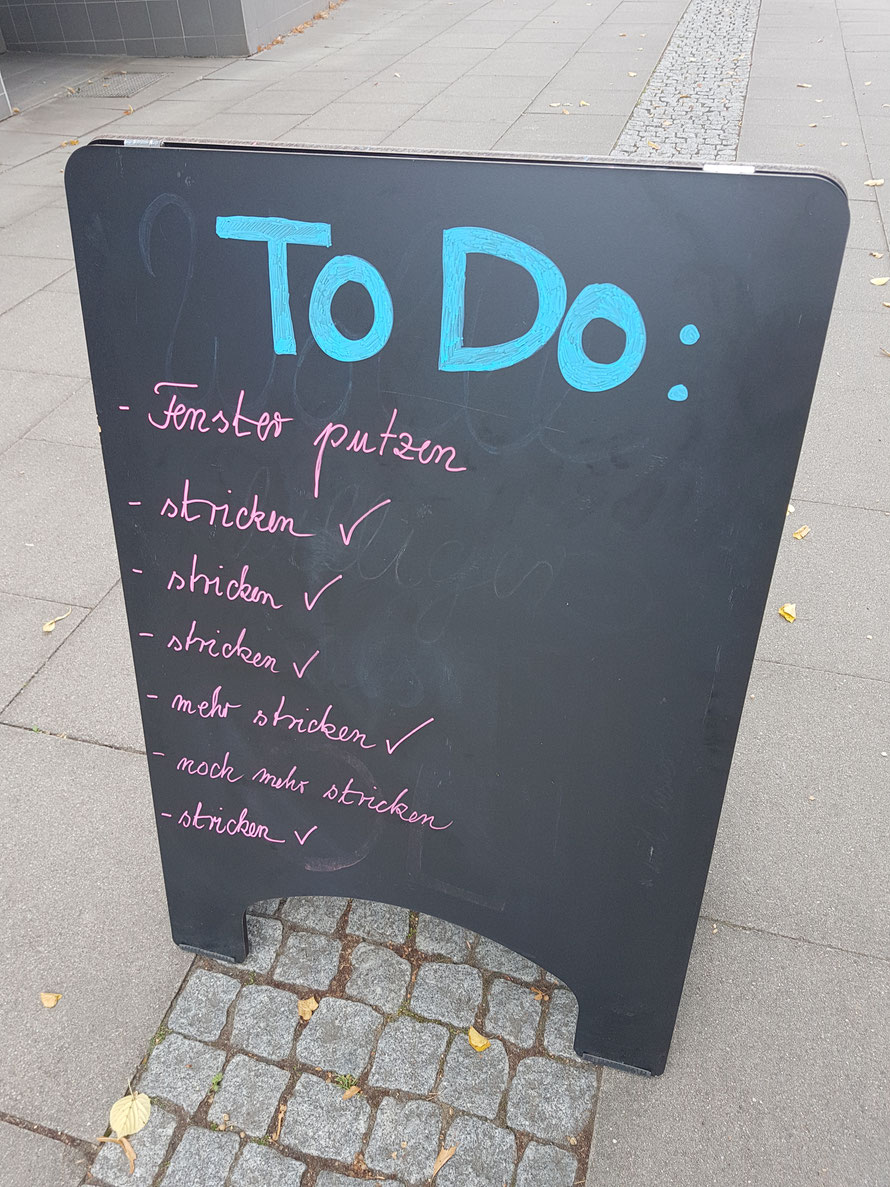 To Do:
- Fenster putzen
- stricken ✓
- stricken ✓
- stricken ✓
- mehr stricken ✓
- noch mehr stricken
- stricken ✓